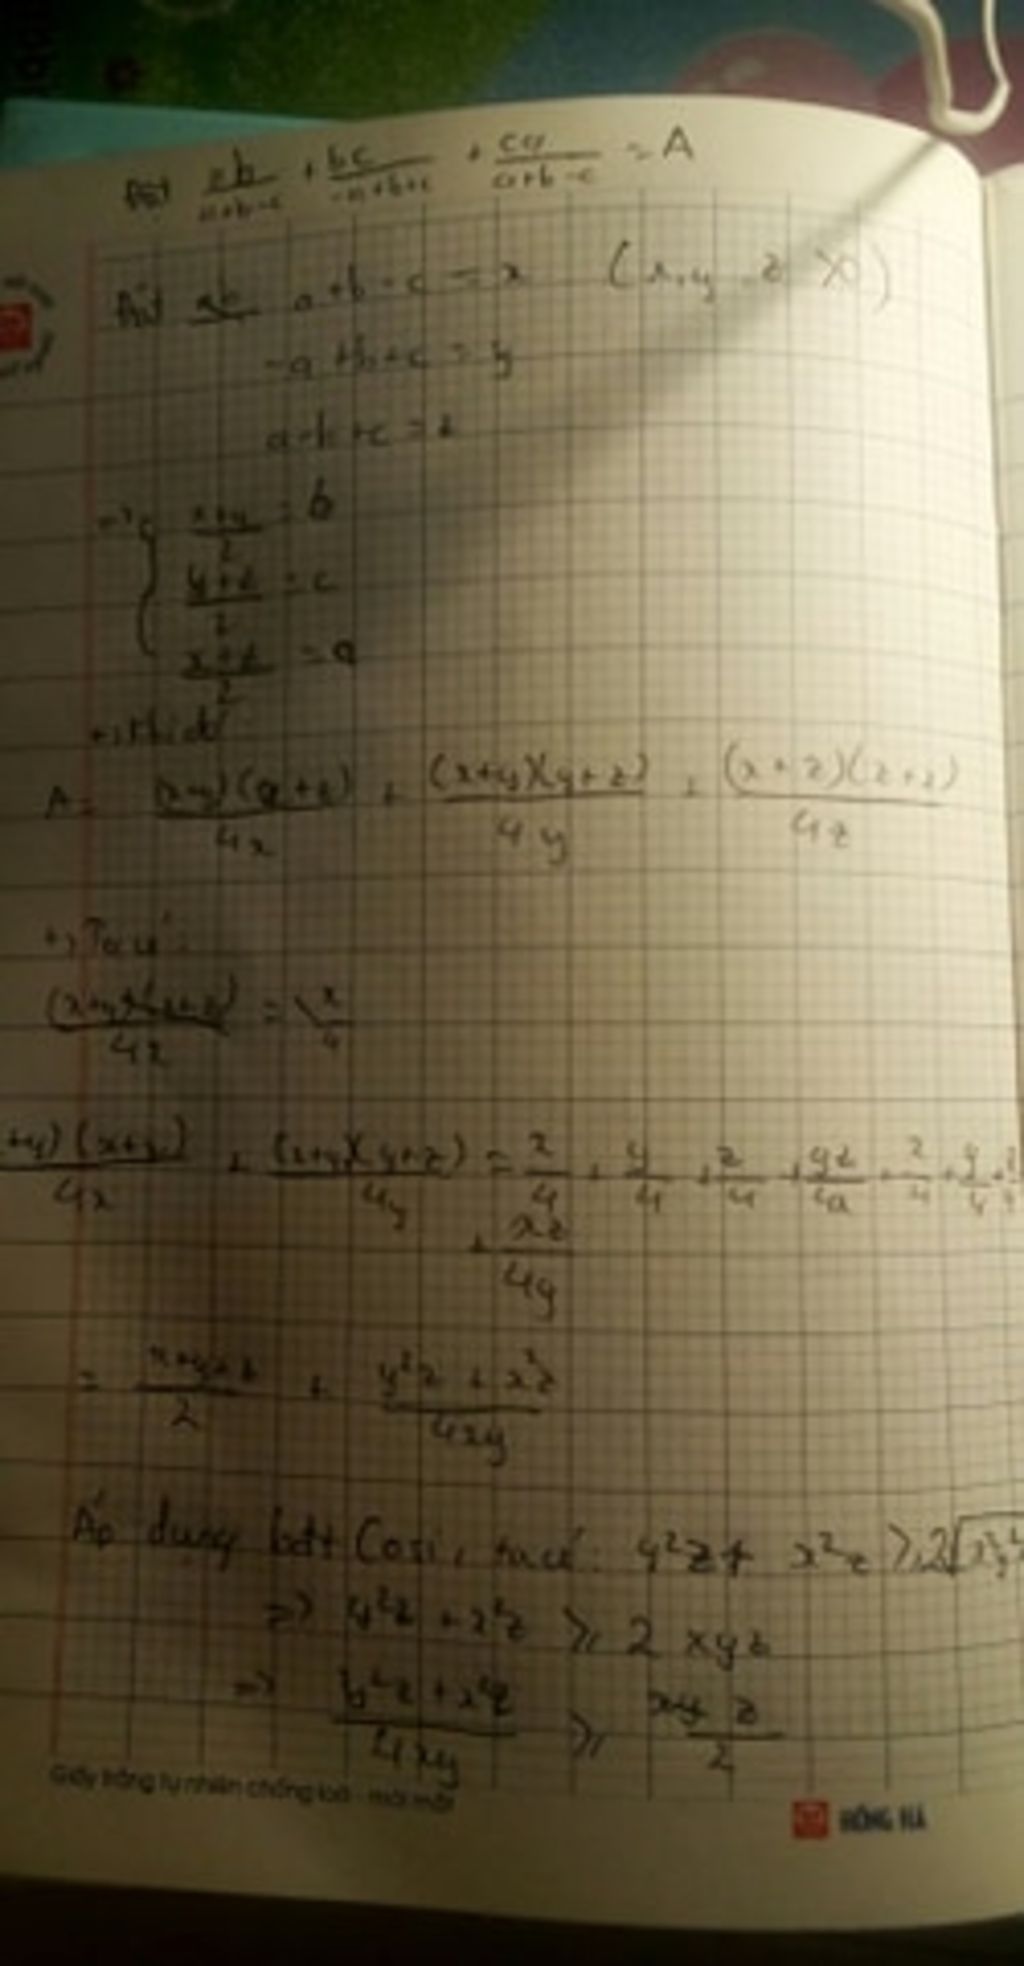 Đặt ab/(a+b-c) + bc/(-a+b+c) + ca/(a+b-c) = A
Đặt ab a+b-c = x (x,y z >0)
-a+b+c = y
a-b+c = z
=> { (x+y)/2 = b
(y+z)/2 = c
(x+z)/2 = a
A = (x+y)(x+z)/4x + (x+y)(y+z)/4y + (x+z)(z+y)/4z
+) Ta có:
(x+y)(x+z)/4x = x/4
+y)(x+z)/4x + (x+y)(y+z)/4y = x/4 + y/4 + z/4 + yz/4x + x/4 + y/4 + z/4
+ xz/4y
= (x+y+z)/2 + (y²z + x²z)/4xy
Áp dụng bđt Cosi, ta có: y²z + x²z ≥ 2√x²y²
=> y²z + x²z ≥ 2 xyz
=> (y²z + x²z)/4xy ≥ z/2
Giấy trắng tự nhiên chống loá - mỏi mắt
HỒNG HÀ